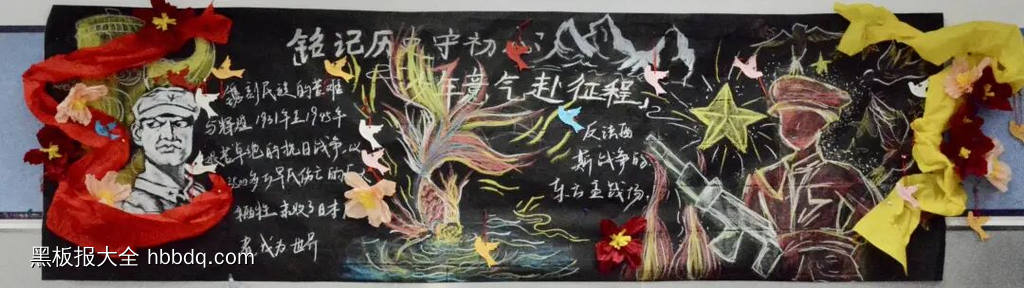 铭记历史守初心
年意气赴征程
镌刻民族的苦难
与辉煌1931年至1945年
艰苦卓绝的抗日战争以
3500多万军民伤亡的
牺牲 宣败了日本
者成为世界
反法西
斯战争的
东方主战场
黑板报大全 hbbdq.com